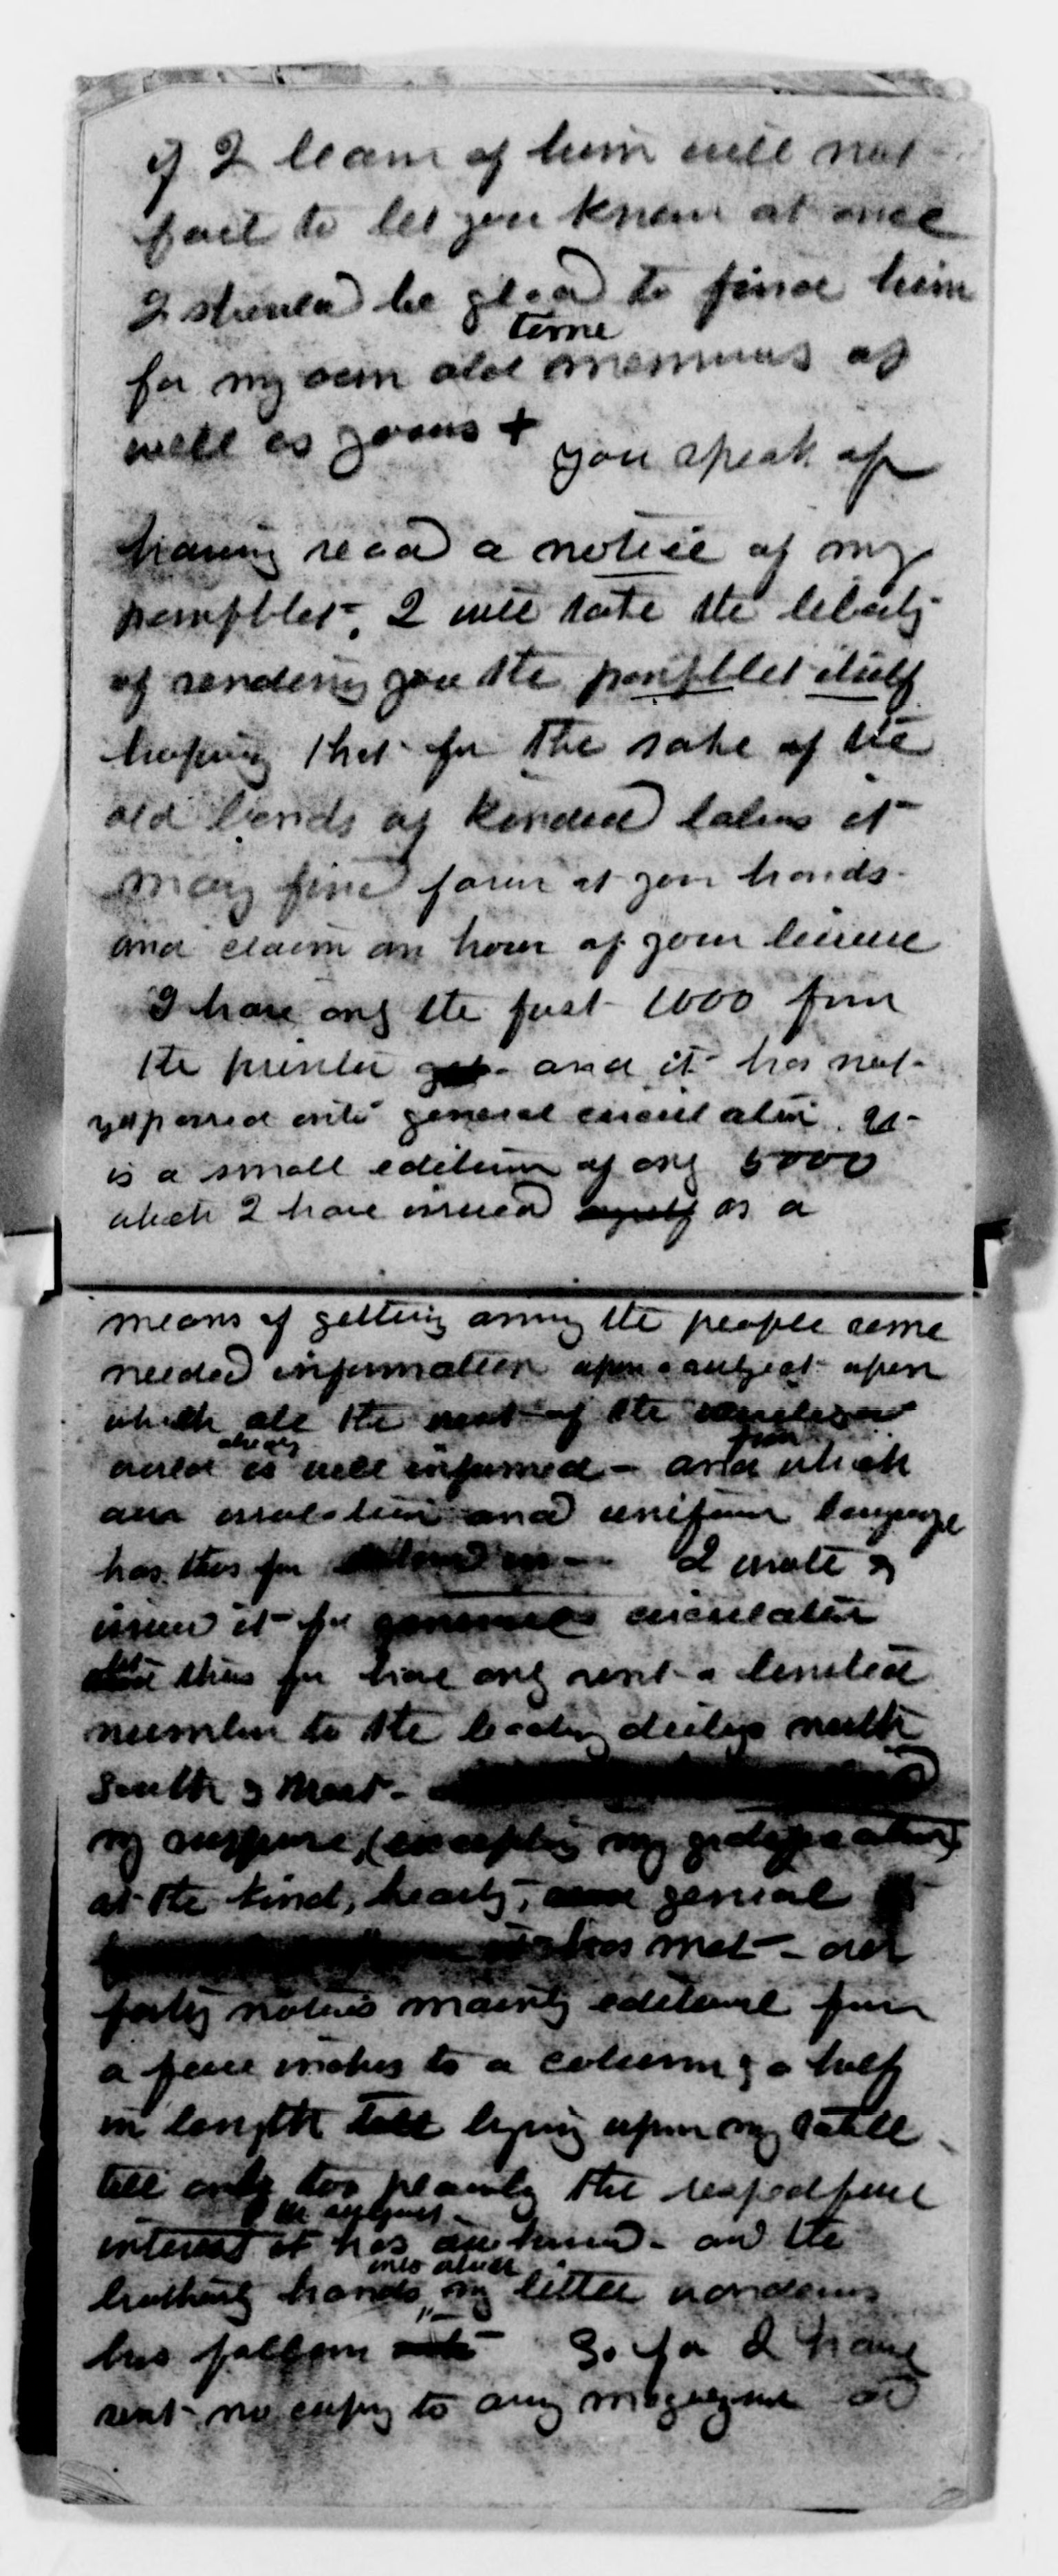 if I learn of him will not
fail to let you know at once
I should be glad to find him
time
for my own old memories as
well as yours + you speak of
having read a notice of my
pamphlet, I will take the liberty
of sending you the pamphlet itself
hoping that for the sake of the
old bonds of kindred labors it
may find favor at your hands
and claim an hour of your leisure
I have only the first 1000 from
the printer and it has not
yet passed into general circulation. It
is a small edition of only 5000
which I have issued myself as a
means of getting among the people some
needed information upon a subject upon
which all the rest of the
already from
world is well informed - and which
our isolation and uniform language
has thus far I wrote &
issued it for general circulation
but thus far have only sent a limited
number to the leading dailies north
South & West -
my surprise, (excepting my gratification)
at the kind, hearty, genial
it has met - over
forty notices mainly editorial from
a few inches to a column & a half
in length lying upon my table
tell only too plainly the respectful
the subject
interest it has awakened - and the
into which
brotherly hands, my little wanderer
has fallen So far I have
sent no copy to any magazine or